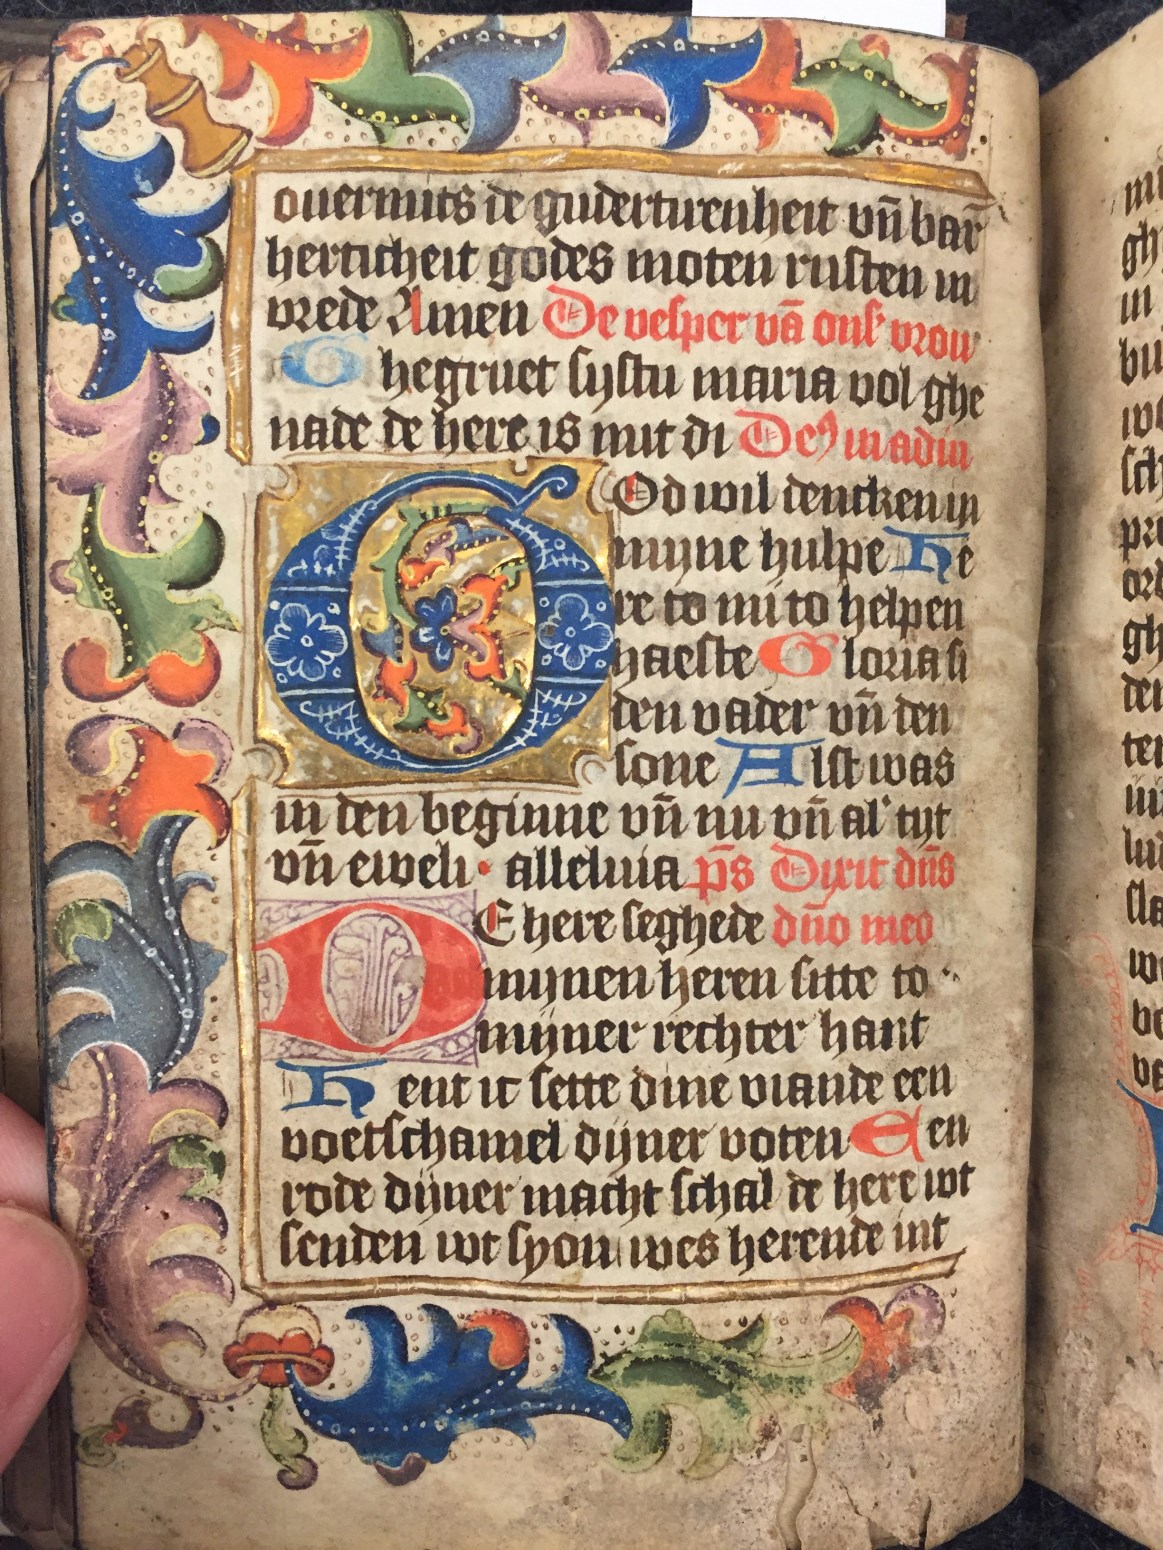 ouermits de gudertirenheit vn̄ bar̄
herticheit godes moten rusten in
vrede Amen De vesper vā onsʼ vrou
Ghegruet systu maria vol ghe
nade de here is mit di Deꝰ in adiu
God wil dencken in
myne hulpe He
re to mi to helpen
haeste Gloria si
den vader vn̄ den
sone Alst was
in den beginne vn̄ nu vn̄ alʼ tyt
vn̄ eweli · alleluia ps̄ Dixit dn̄s
DE here seghede dn̄o meo
mynen heren sitte to
myner rechter hant
Hent ic sette dine viande een
voetschamel dyner voten Een
rode dyner macht schal de here wt
senden wt syon wes herende int